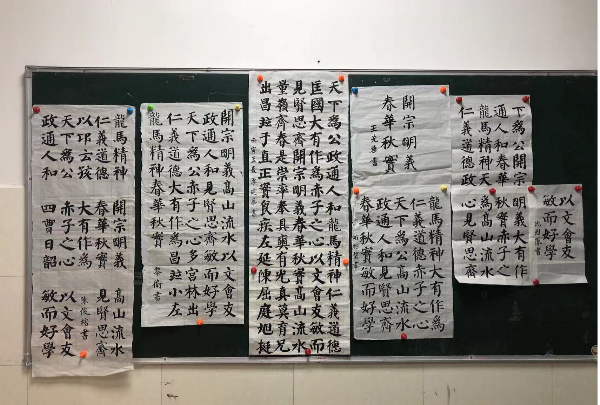 龍馬精神 開宗明義 高山流水
仁義道德 春華秋實 見賢思齊
大有作為
朱俊培書
天下為公 赤子之心 以文會友
政通人和 四曹日韶 敏而好學
開宗明義高山流水以文會友
政通人和見賢思齊敏而好學
天下為公赤子之心多宮林出
仁義道德大有作為昌趾小左
龍馬精神春華秋實
天下為公政通人和龍馬精神仁義道德
匡國大有作為赤子之心以文會友敏而
見賢思齊開宗明義春華秋實高山流水
出昌趾于直正實良疾左延陳屈庭地挺
開宗明義
春華秋實
龍馬精神大有作為
仁義道德赤子之心
天下為公高山流水
政通人和見賢思齊
春華秋實敏而好學
下為公開宗明義大有作
龍馬精神天
仁義道德政心見賢思齊
以文會友
敏而好學